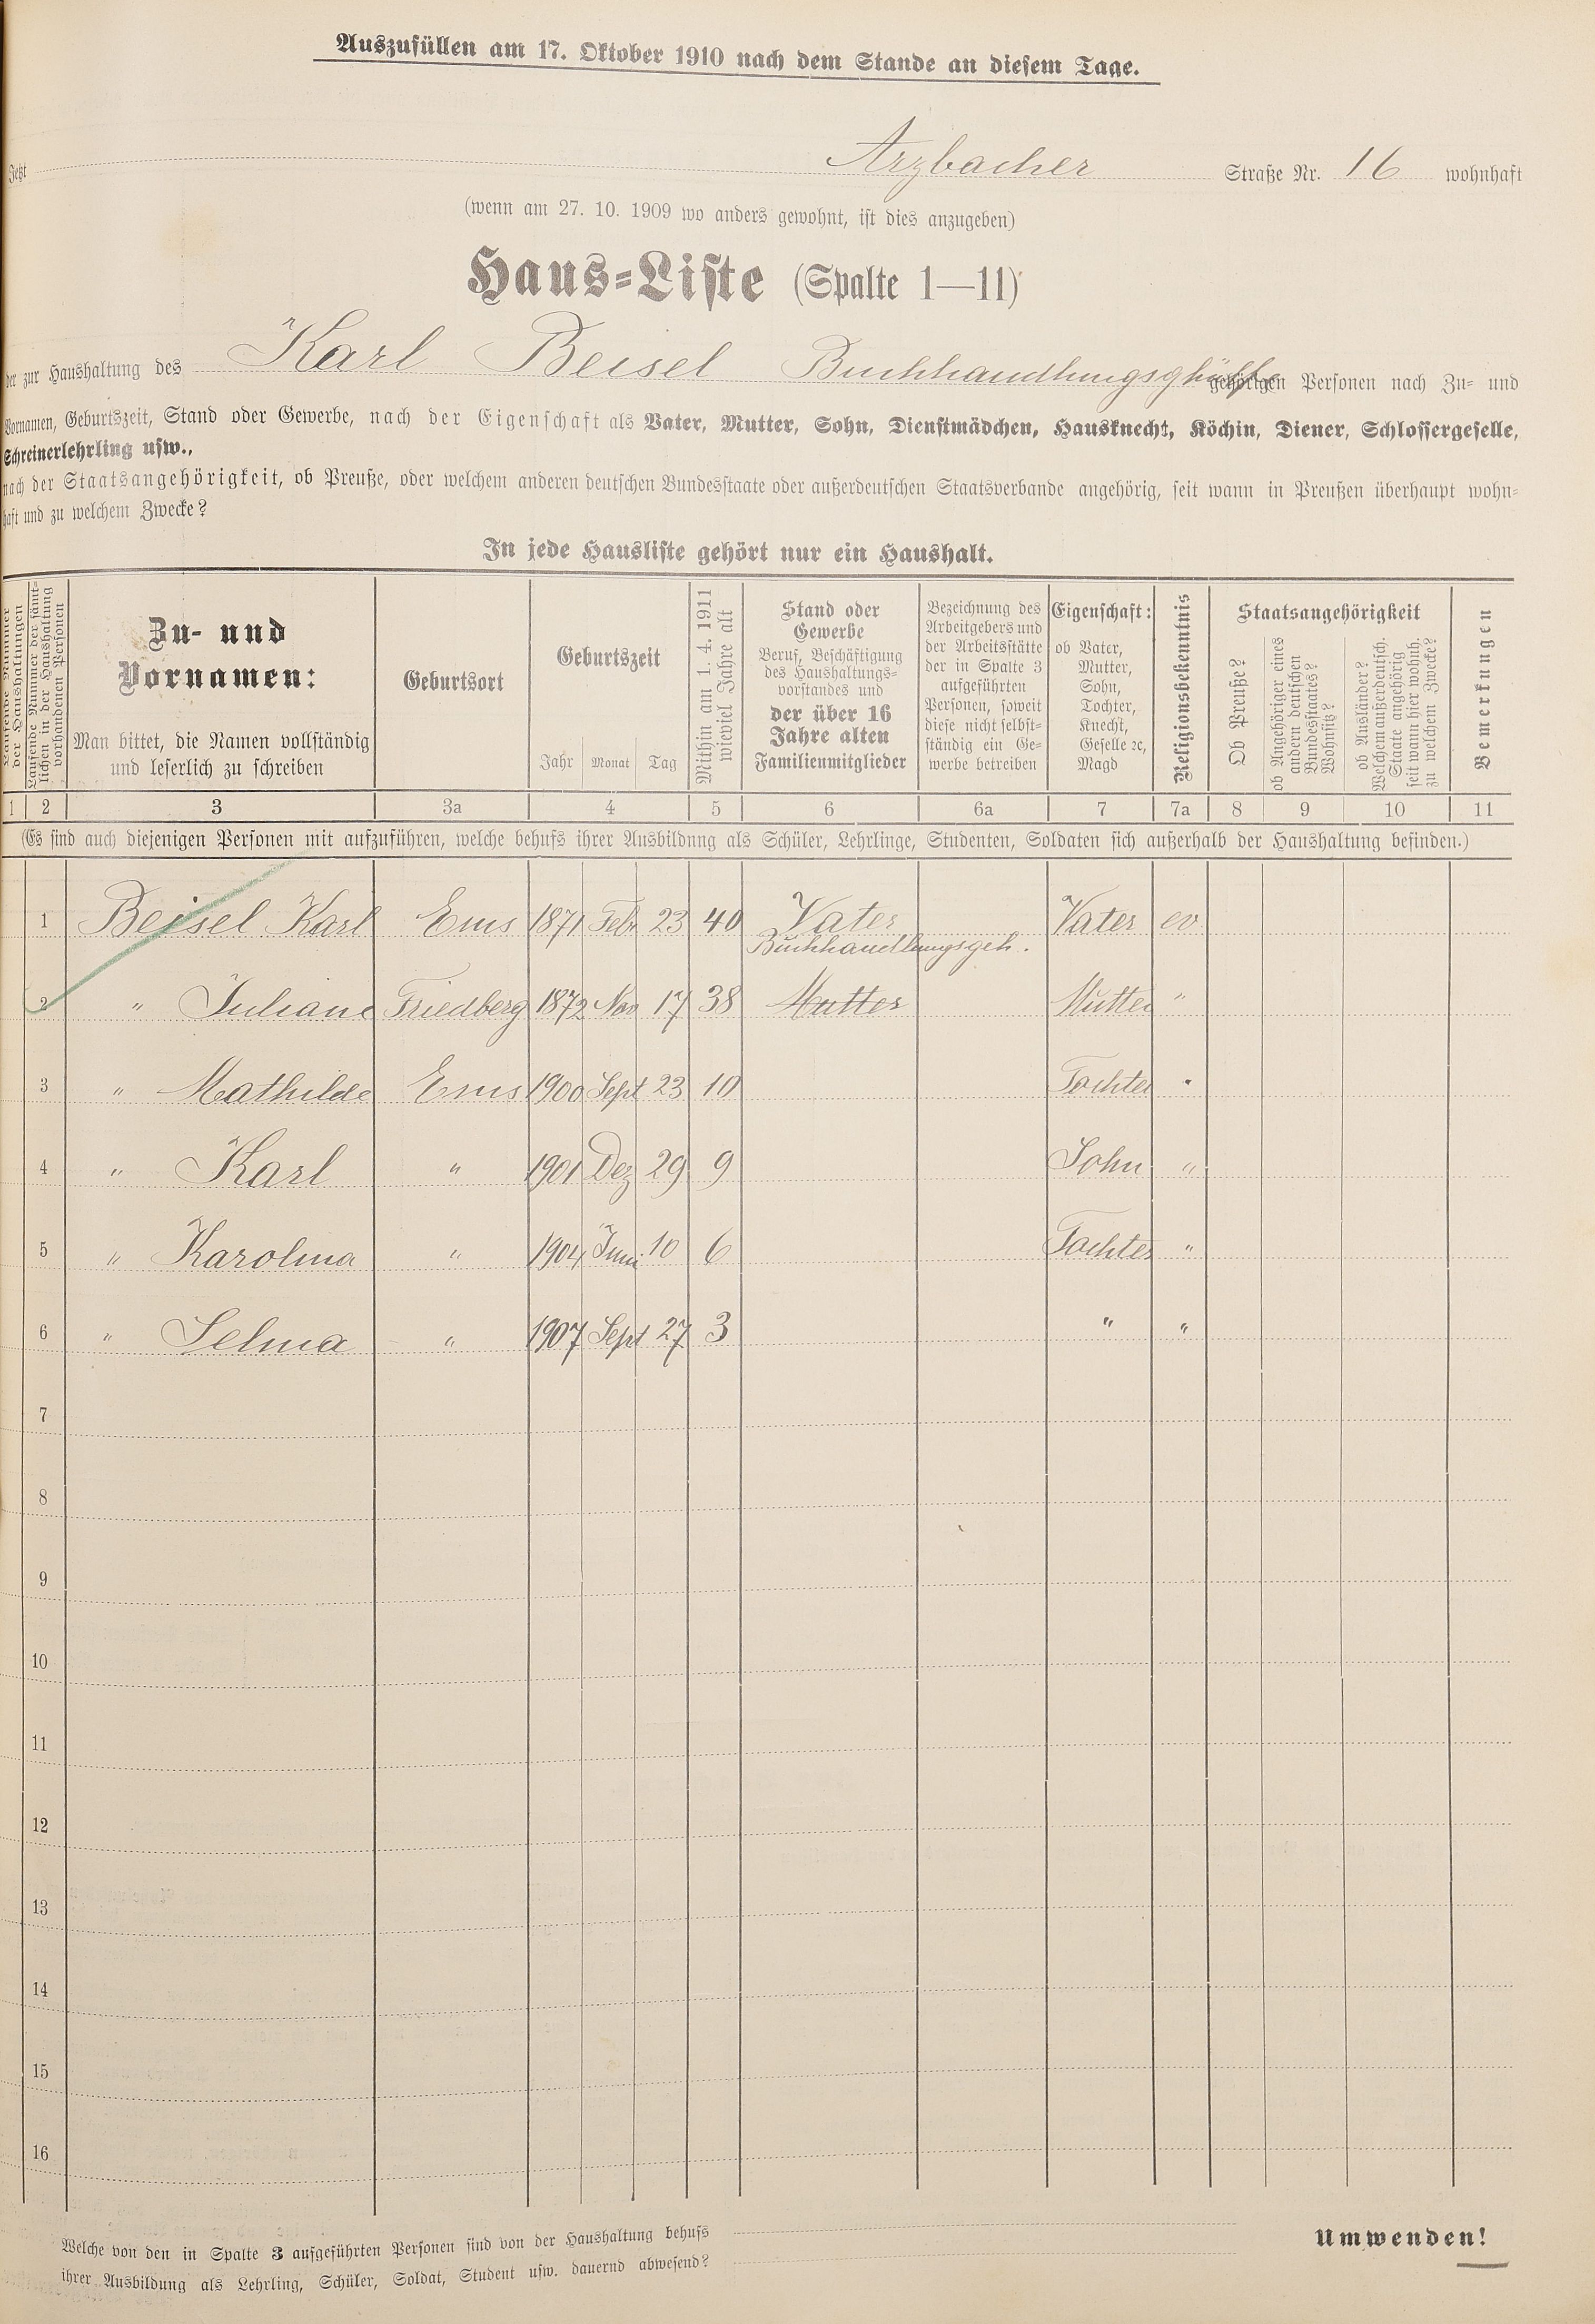 Auszufüllen am 17. Oktober 1910 nach dem Stande an diesem Tage.
Jetzt Arzbacher Straße Nr. 16 wohnhaft
(wenn am 27. 10. 1909 wo anders gewohnt, ist dies anzugeben)
Haus-Liste (Spalte 1—11)
der zur Haushaltung des Karl Beisel Buchhandlungsghülfe gehörigen Personen nach Zu- und
Vornamen, Geburtszeit, Stand oder Gewerbe, nach der Eigenschaft als Vater, Mutter, Sohn, Dienstmädchen, Hausknecht, Köchin, Diener, Schlossergeselle,
Schreinerlehrling usw.,
nach der Staatsangehörigkeit, ob Preuße, oder welchem anderen deutschen Bundesstaate oder außerdeutschen Staatsverbande angehörig, seit wann in Preußen überhaupt wohn-
haft und zu welchem Zwecke?
In jede Hausliste gehört nur ein Haushalt.
Laufende Nummer
der Haushaltungen
Laufende Nummer der sämt-
lichen in der Haushaltung
vorhandenen Personen
Zu- und
Vornamen:
Man bittet, die Namen vollständig
und leserlich zu schreiben
Geburtsort
Geburtszeit
Jahr Monat Tag
Mithin am 1. 4. 1911
wieviel Jahre alt
Stand oder
Gewerbe
Beruf, Beschäftigung
des Haushaltungs-
vorstandes und
der über 16
Jahre alten
Familienmitglieder
Bezeichnung des
Arbeitgebers und
der Arbeitsstätte
der in Spalte 3
aufgeführten
Personen, soweit
diese nicht selbst-
ständig ein Ge-
werbe betreiben
Eigenschaft:
ob Vater,
Mutter,
Sohn,
Tochter,
Knecht,
Geselle ꝛc,
Magd
Religionsbekenntnis
Staatsangehörigkeit
Ob Preuße?
ob Angehöriger eines
andern deutschen
Bundesstaates?
Wohnsitz?
ob Ausländer?
Welchem außerdeutsch.
Staate angehörig
seit wann hier wohnh.
zu welchem Zwecke?
Bemerkungen
1 2 3 3a 4 5 6 6a 7 7a 8 9 10 11
(Es sind auch diejenigen Personen mit aufzuführen, welche behufs ihrer Ausbildung als Schüler, Lehrlinge, Studenten, Soldaten sich außerhalb der Haushaltung befinden.)
1 Beisel Karl Ems 1871 Febr 23 40 Vater Vater ev
Buchhandlungsgeh.
2 " Juliane Friedberg 1872 Nov 17 38 Mutter Mutter "
3 " Mathilde Ems 1900 Sept 23 10 Tochter "
4 " Karl " 1901 Dez 29 9 Sohn "
5 " Karolina " 1904 Juni 10 6 Tochter "
6 " Selma " 1907 Sept 27 3 " "
7
8
9
10
11
12
13
14
15
16
Welche von den in Spalte 3 aufgeführten Personen sind von der Haushaltung behufs
ihrer Ausbildung als Lehrling, Schüler, Soldat, Student usw. dauernd abwesend?
Umwenden!